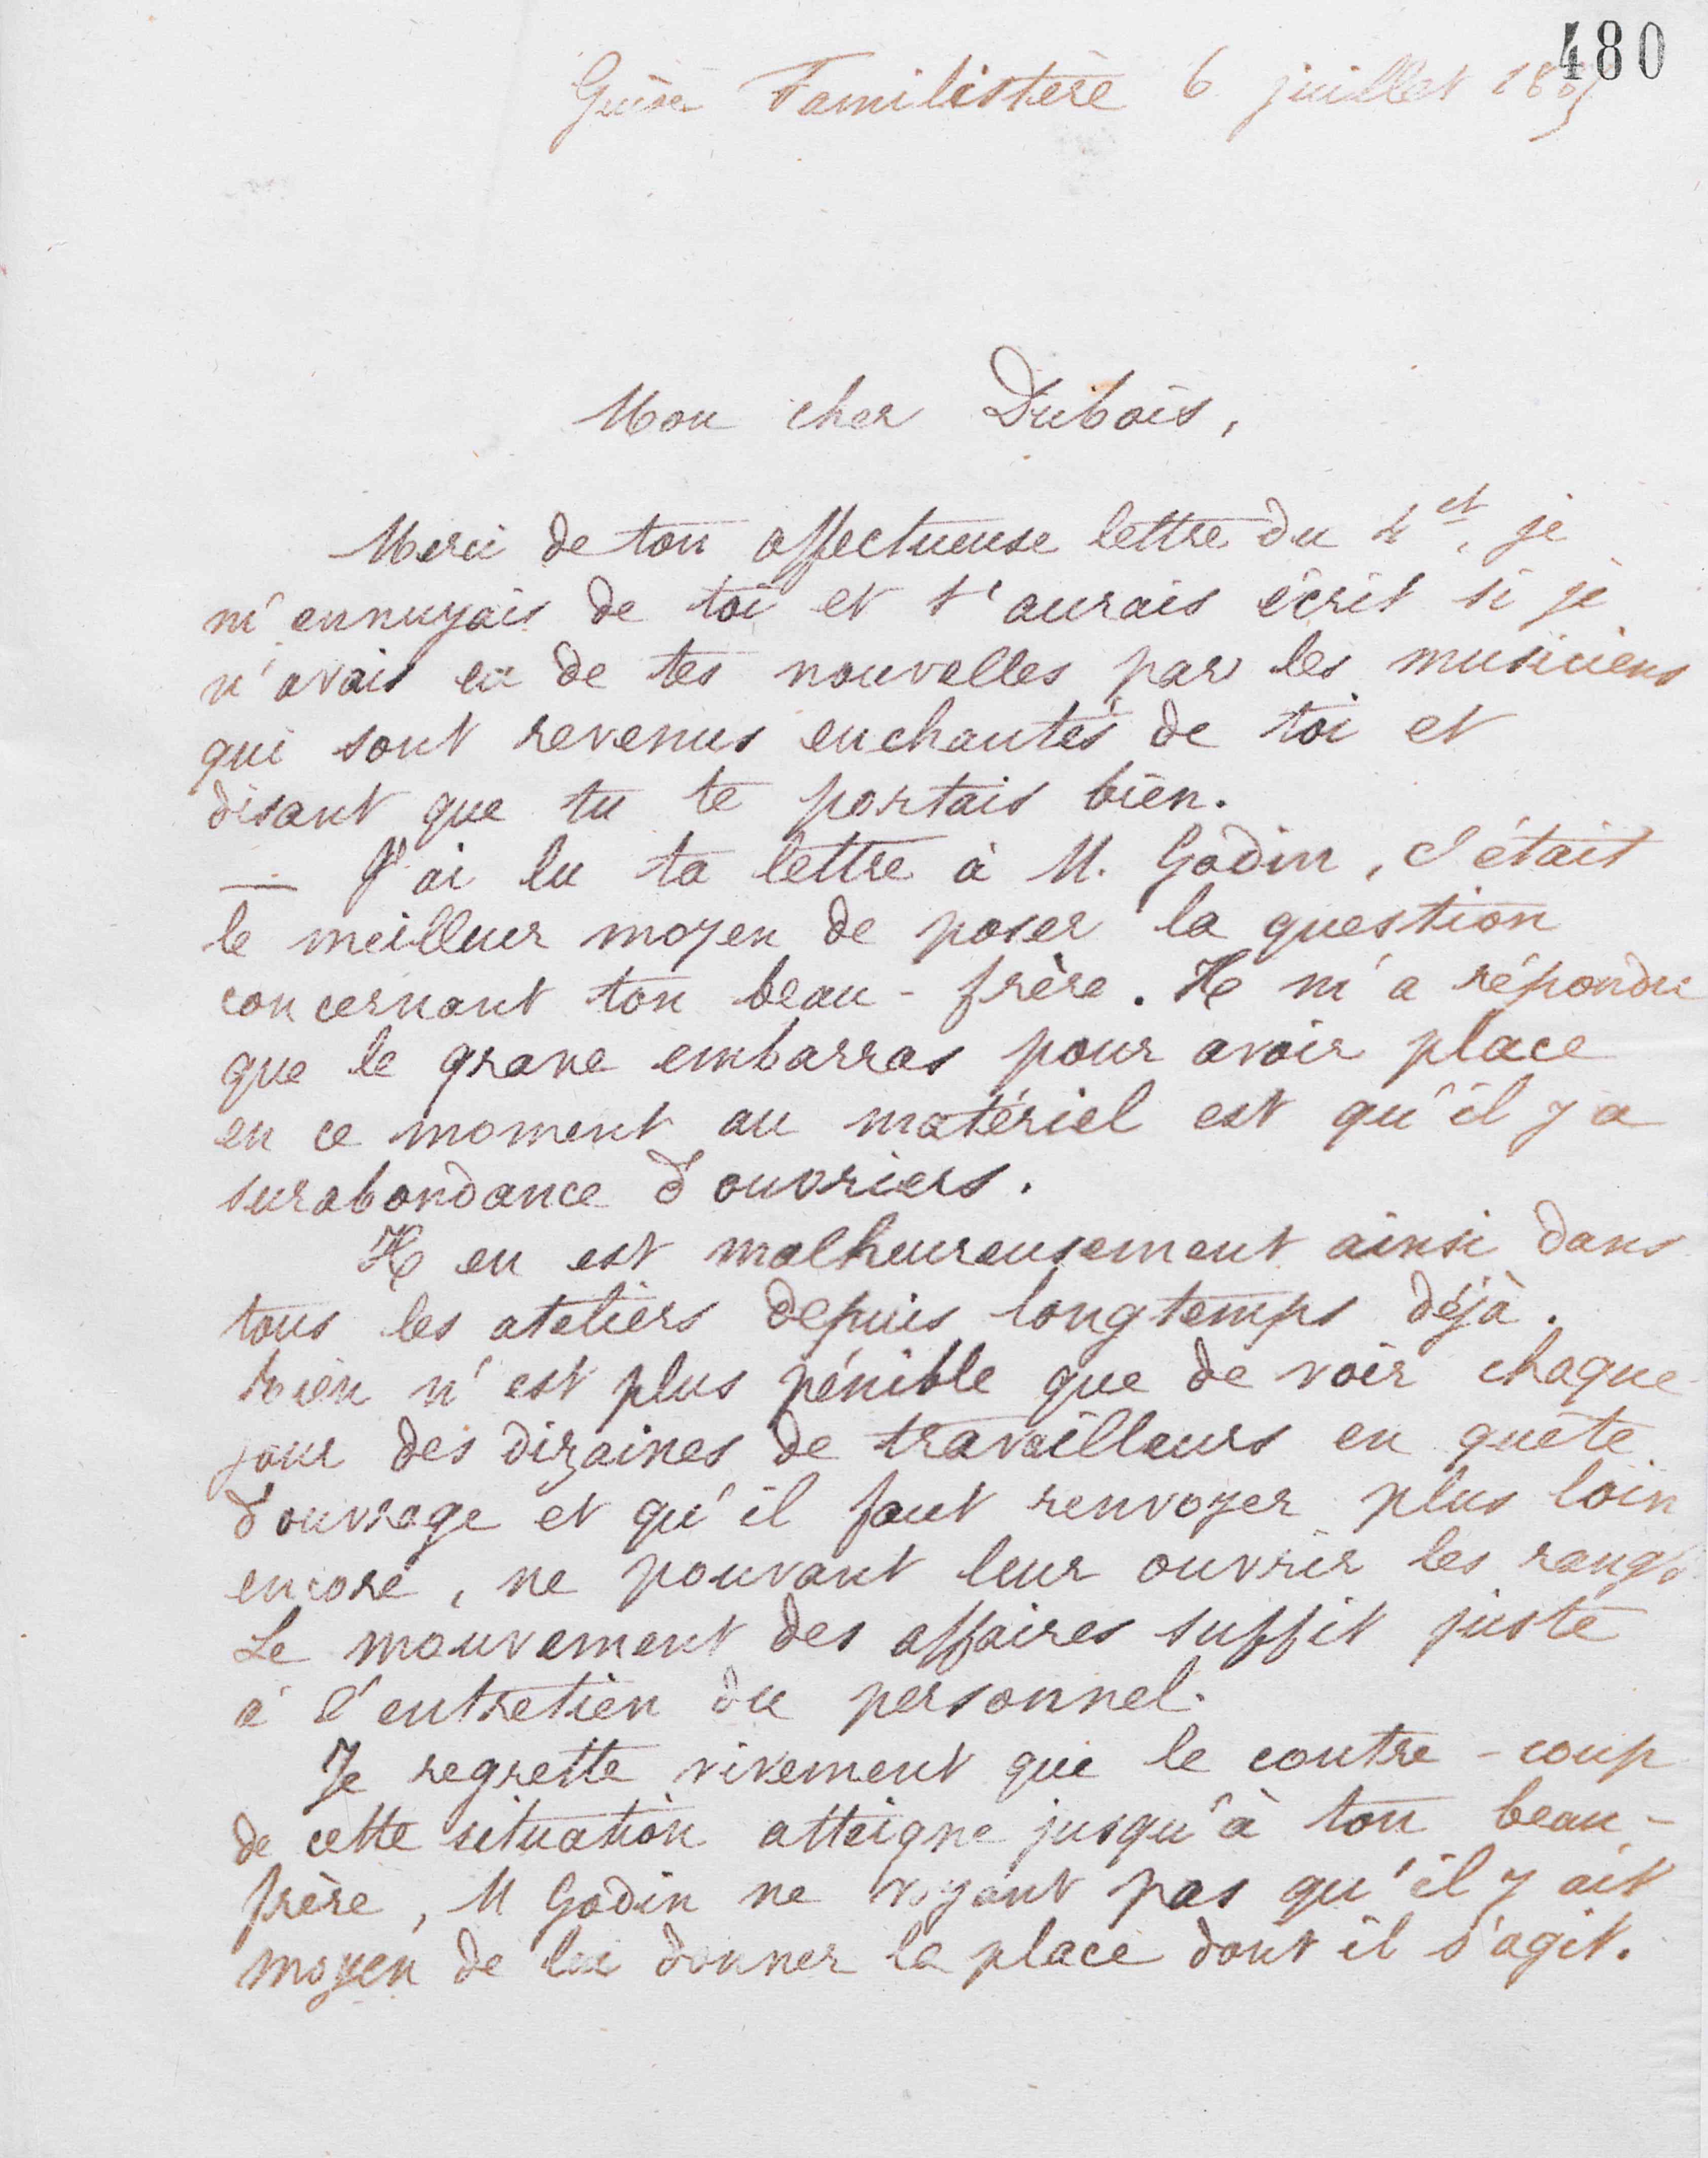 480
Guise Familistère 6 juillet 188
Mon cher Dubois,
Merci de ton affectueuse lettre du 4 ct, je
m'ennuyais de toi et t'aurais écrit si je
n'avais eu de tes nouvelles par les musiciens
qui sont revenus enchantés de toi et
disant que tu te portais bien.
— J'ai lu ta lettre à M. Godin, c'était
le meilleur moyen de poser la question
concernant ton beau-frère. Il m'a répondu
que le grave embarras pour avoir place
en ce moment au matériel est qu'il y a
surabondance d'ouvriers.
Il en est malheureusement ainsi dans
tous les ateliers depuis longtemps déjà.
Rien n'est plus pénible que de voir chaque
jour des dizaines de travailleurs en quête
d'ouvrage et qu'il faut renvoyer plus loin
encore, ne pouvant leur ouvrir les rangs.
Le mouvement des affaires suffit juste
à l'entretien du personnel.
Je regrette vivement que le contre-coup
de cette situation atteigne jusqu'à ton beau-
frère, M Godin ne voyant pas qu'il y ait
moyen de lui donner la place dont il s'agit.